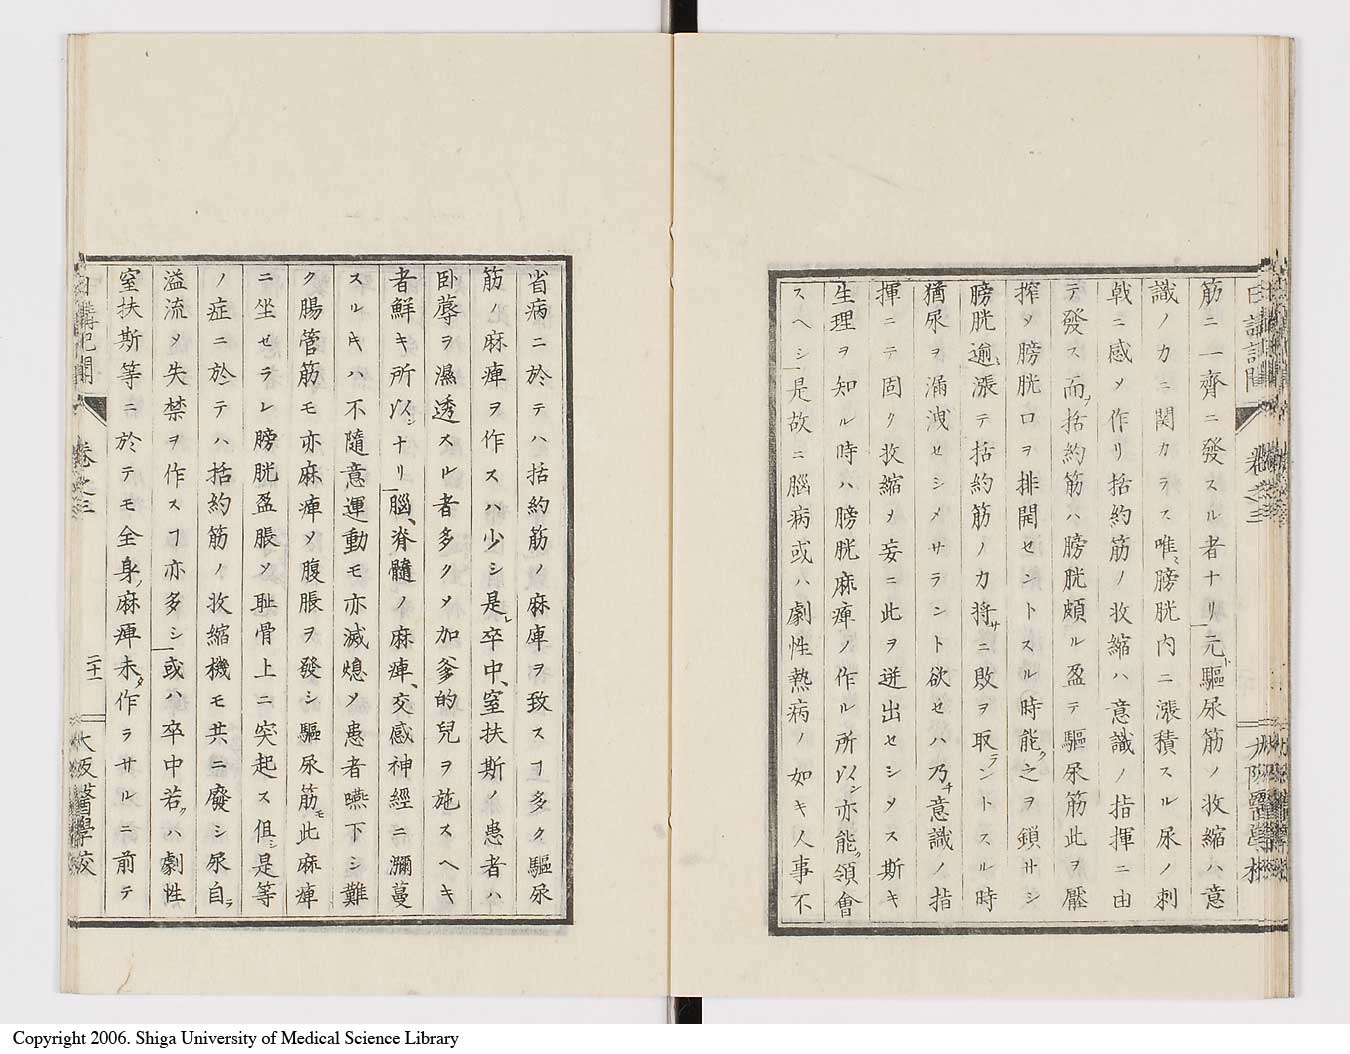 日講記聞
卷之三
大阪醫學校
筋ニ一齊ニ發スル者ナリ元ト驅尿筋ノ收縮ハ意
識ノカニ関カラス唯ミ膀胱内ニ漲積スル尿ノ刺
戟ニ感メ作リ括約筋ノ收縮ハ意識ノ指揮ニ由
テ發ス而ヲ括約筋ハ膀胱頗ル盈テ驅尿筋此ヲ壓
搾メ膀胱口ヲ排開セントスル時能ク之ヲ鎖サシ
膀胱逾漲テ括約筋ノ力将サニ敗ヲ取ラントスル時
猶尿ヲ漏洩セシメサラント欲セハ乃チ意識ノ指
揮ニテ固ク收縮メ妄ニ此ヲ迸出セシメス斯キ
生理ヲ知ル時ハ膀胱麻痺ノ作ル所以ン亦能ク領會
スヘシ是故ニ腦病或ハ劇性熱病ノ如キ人事不
省病ニ於テハ括約筋ノ麻痺ヲ致スヿ多ク驅尿
筋ノ麻痺ヲ作スハ少シ是レ卒中、窒扶斯ノ患者ハ
卧蓐ヲ濕透スル者多クメ加爹的兒ヲ施スヘキ
者鮮キ所以シナリ腦、脊髓ノ麻痺、交感神經ニ瀰蔓
スルキハ不隨意運動モ亦滅熄メ患者嚥下シ難
ク腸管筋モ亦麻痺メ腹脹ヲ發シ驅尿筋モ此麻痺
ニ坐セラレ膀胱盈脹メ耻骨上ニ突起ス俱シ是等
ノ症ニ於テハ括約筋ノ收縮機モ共ニ廢シ尿自ラ
溢流メ失禁ヲ作スヿ亦多シ或ハ卒中若クハ劇性
窒扶斯等ニ於テモ全身ノ麻痺未タ作ラサルニ前テ
日講記聞
卷之三
二十一
大阪醫學校
Copyright 2006. Shiga University of Medical Science Library